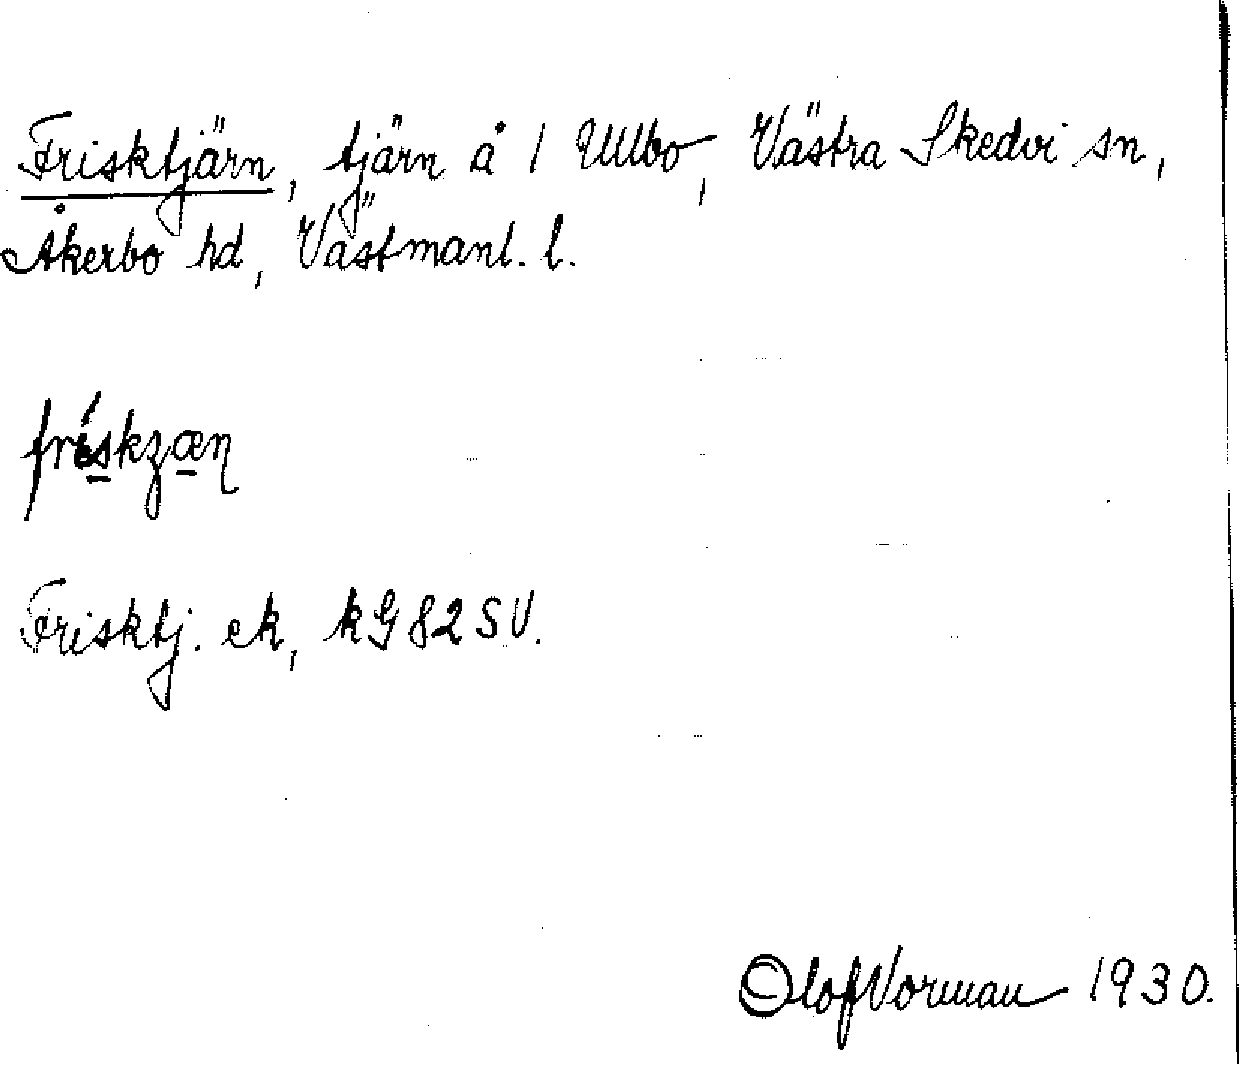 Frisktjärn, tjärn å 1 Ullbo, Västra Skedvi sn,
Åkerbo hd, Västmanl. l.
frískzæn
Frisktj. ek, kG 82 SV.
Olof Vorman 1930.